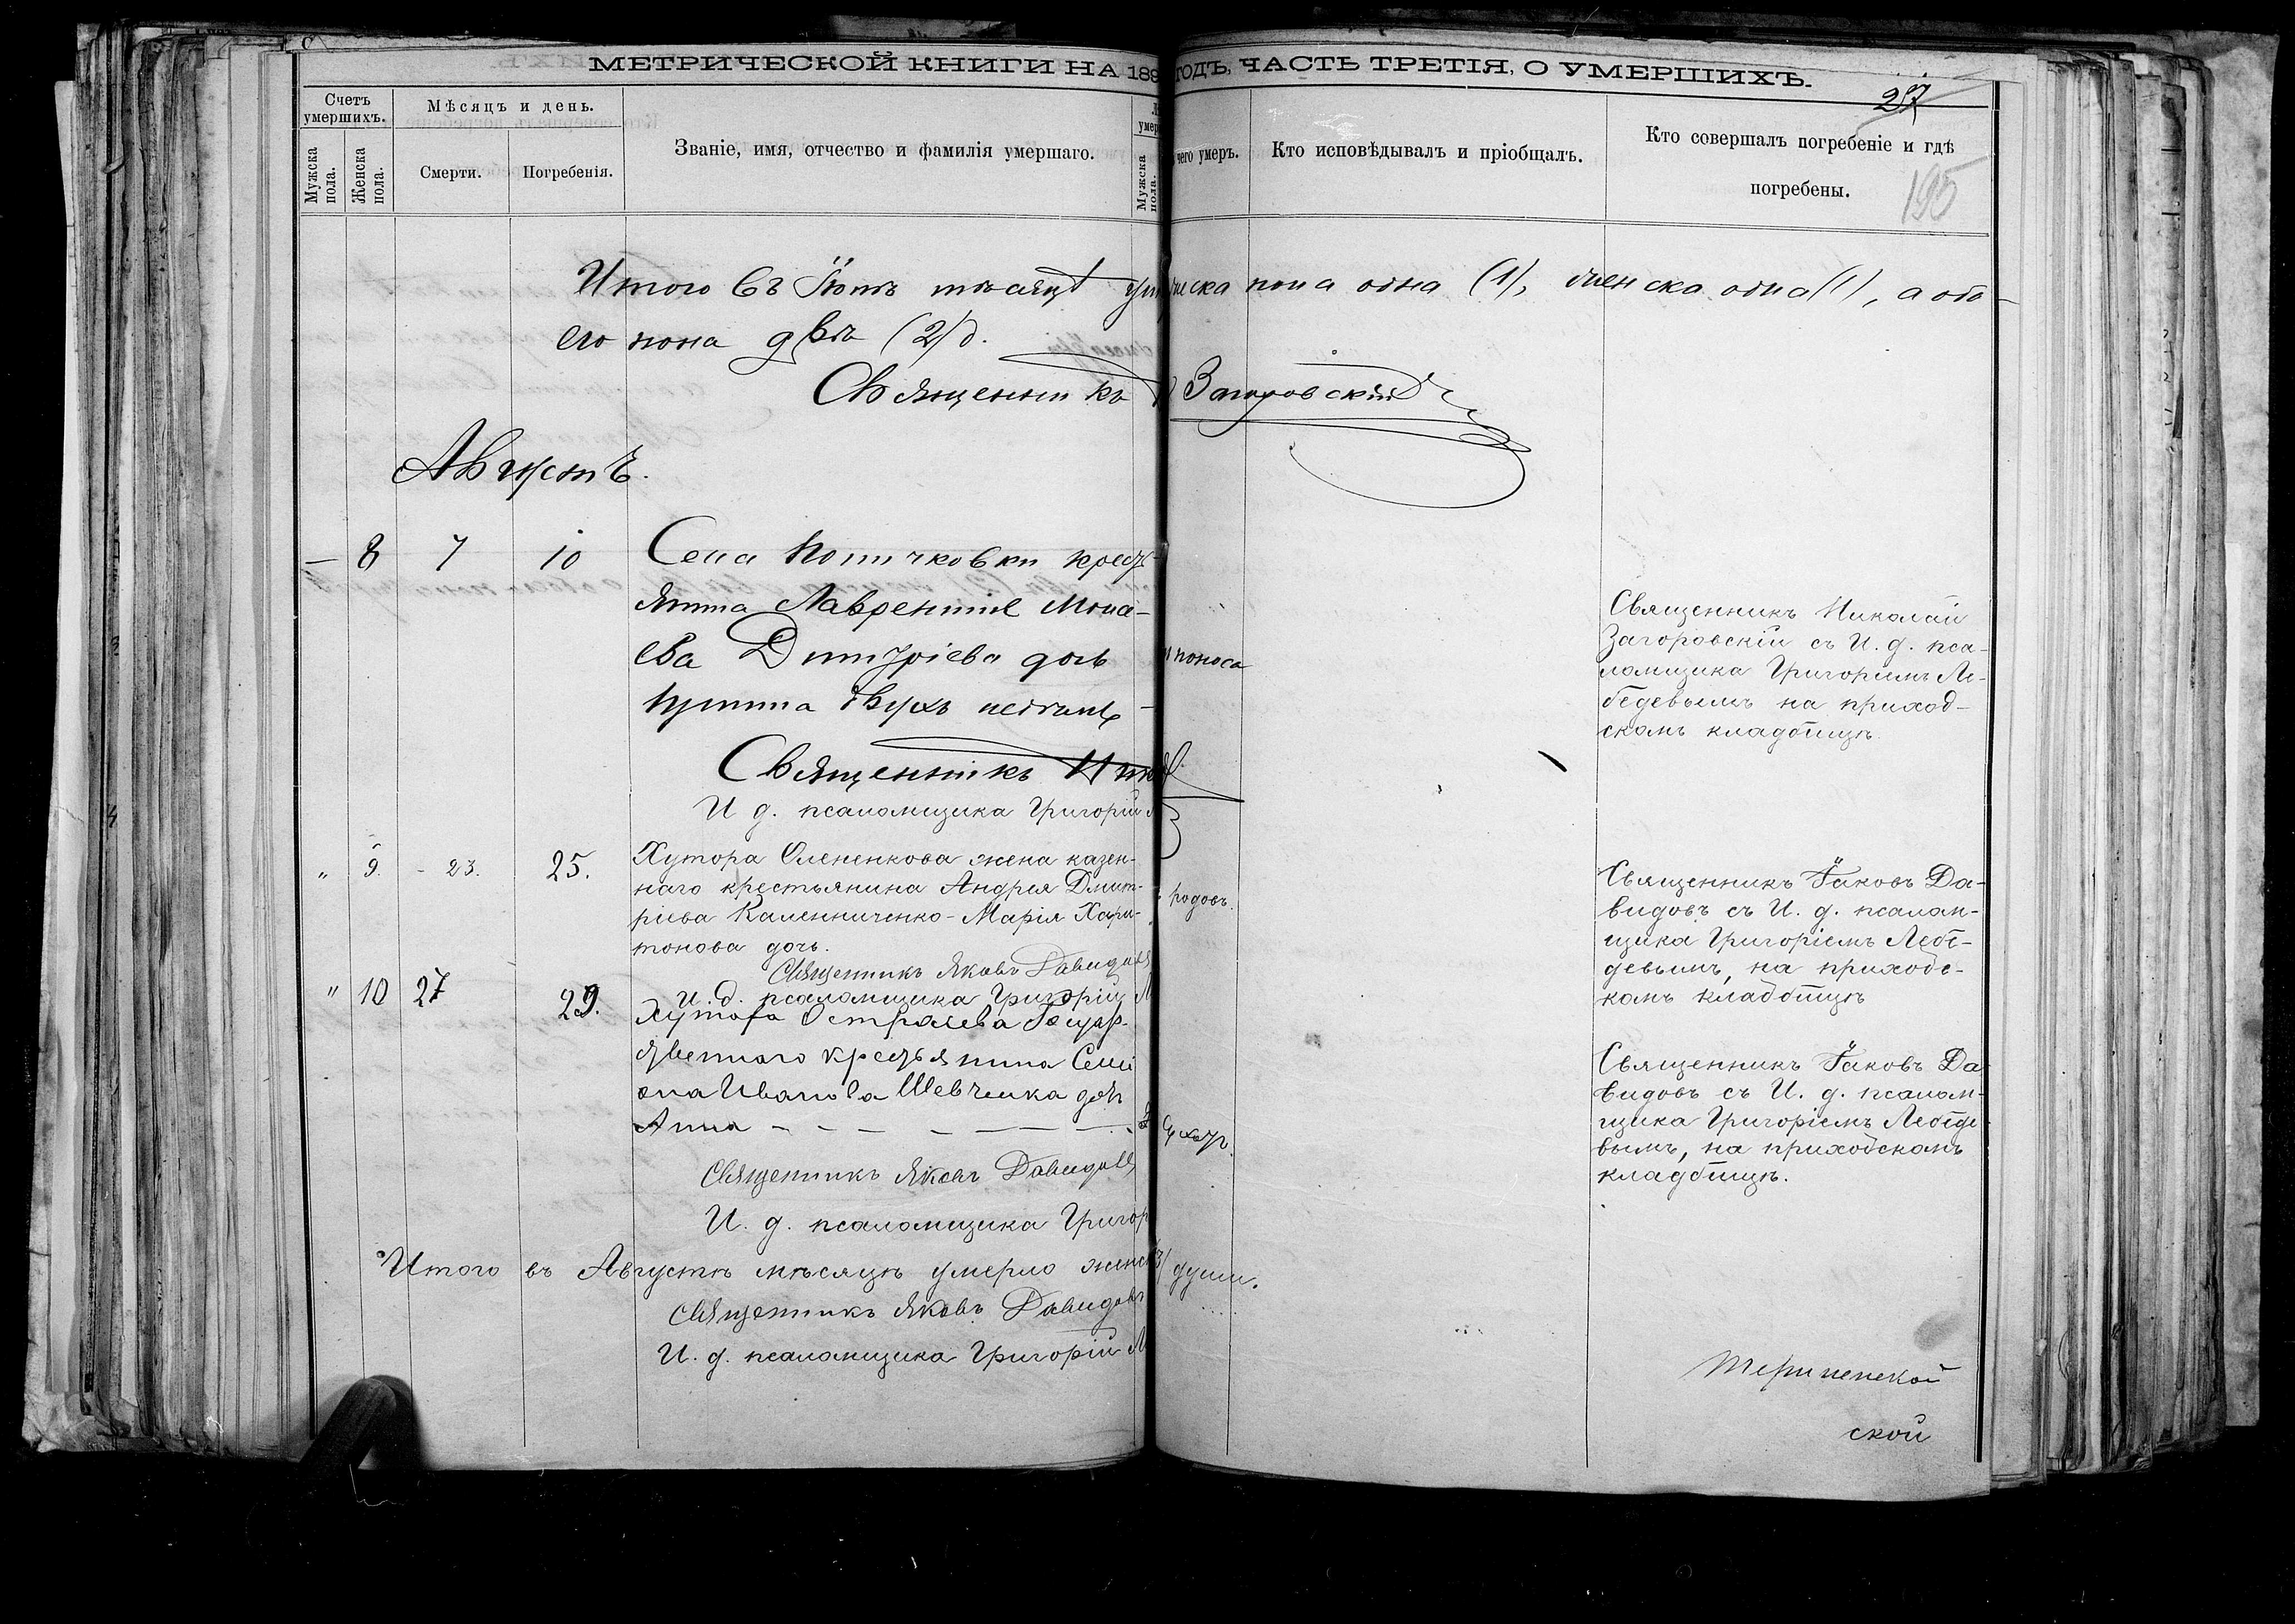 МЕТРИЧЕСКОЙ КНИГИ НА 189 ГОДЪ, ЧАСТЬ ТРЕТІЯ, О УМЕРШИХЪ.
27
195
Счетъ умершихъ.
Мужска пола.
Женска пола.
Мѣсяцъ и день.
Смерти.
Погребенія.
Званіе, имя, отчество и фамилія умершаго.
Мужска пола.
чего умеръ.
Кто исповѣдывалъ и пріобщалъ.
Кто совершалъ погребеніе и гдѣ
погребены.
Итого въ Іюлѣ мѣсяцѣ пола одна (1), женска одна (1), а обо-
его пола двѣ (2) д.
Священникъ Загоровскій
Августъ.
— 8 7 10 Села кресть-
янина Лаврентія
ева Димитріева дочь
двухъ недѣль
поноса
Священникъ
И. д. псаломщика Григорій
Священникъ Николай
Загоровскій съ И. д. пса-
ломщика Григоріемъ Ле-
бедевымъ на приход-
скомъ кладбищѣ.
" 9. 23. 25. Хутора Олененкова жена казен-
наго крестьянина Андрея Дмит-
ріева Каленниченко - Марія Хари-
тонова дочь.
родовъ.
Священникъ Яковъ Давидовъ
И. д. псаломщика Григорій
Священникъ Іаковъ Да-
видовъ съ И. д. псалом-
щика Григоріемъ Лебе-
девымъ, на приходс-
комъ кладбищѣ
" 10 27 29. Хутора Государ-
ственнаго крестьянина Семі
она Иванова Шевченка дочь
Анна
Священникъ Яковъ Давидовъ
И. д. псаломщика Григор
Священникъ Іаковъ Да
видовъ съ И. д. псалом-
щика Григоріемъ Лебеде
вымъ, на приходскомъ
кладбищѣ.
Итого въ Августѣ мѣсяцѣ умерло женск души.
Священникъ Яковъ Давидовъ
И. д. псаломщика Григорій
ской